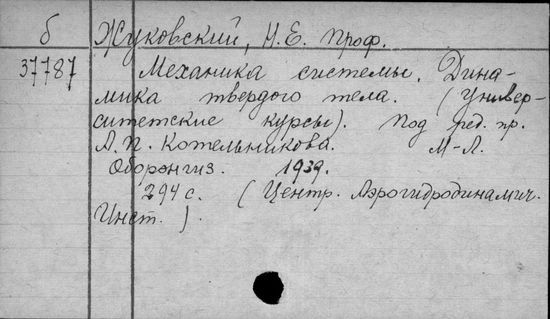 б Жуковский, Н.Е. Проф.
37787 Механика системы. Дина-
мика твердого тела. (Универ-
ситетские курсы). Под ред. пр.
А.П. Котельникова. М-Л.
Оборонгиз. 1939.
294 с. (Центр. Аэрогидродинамич.
Инст.).